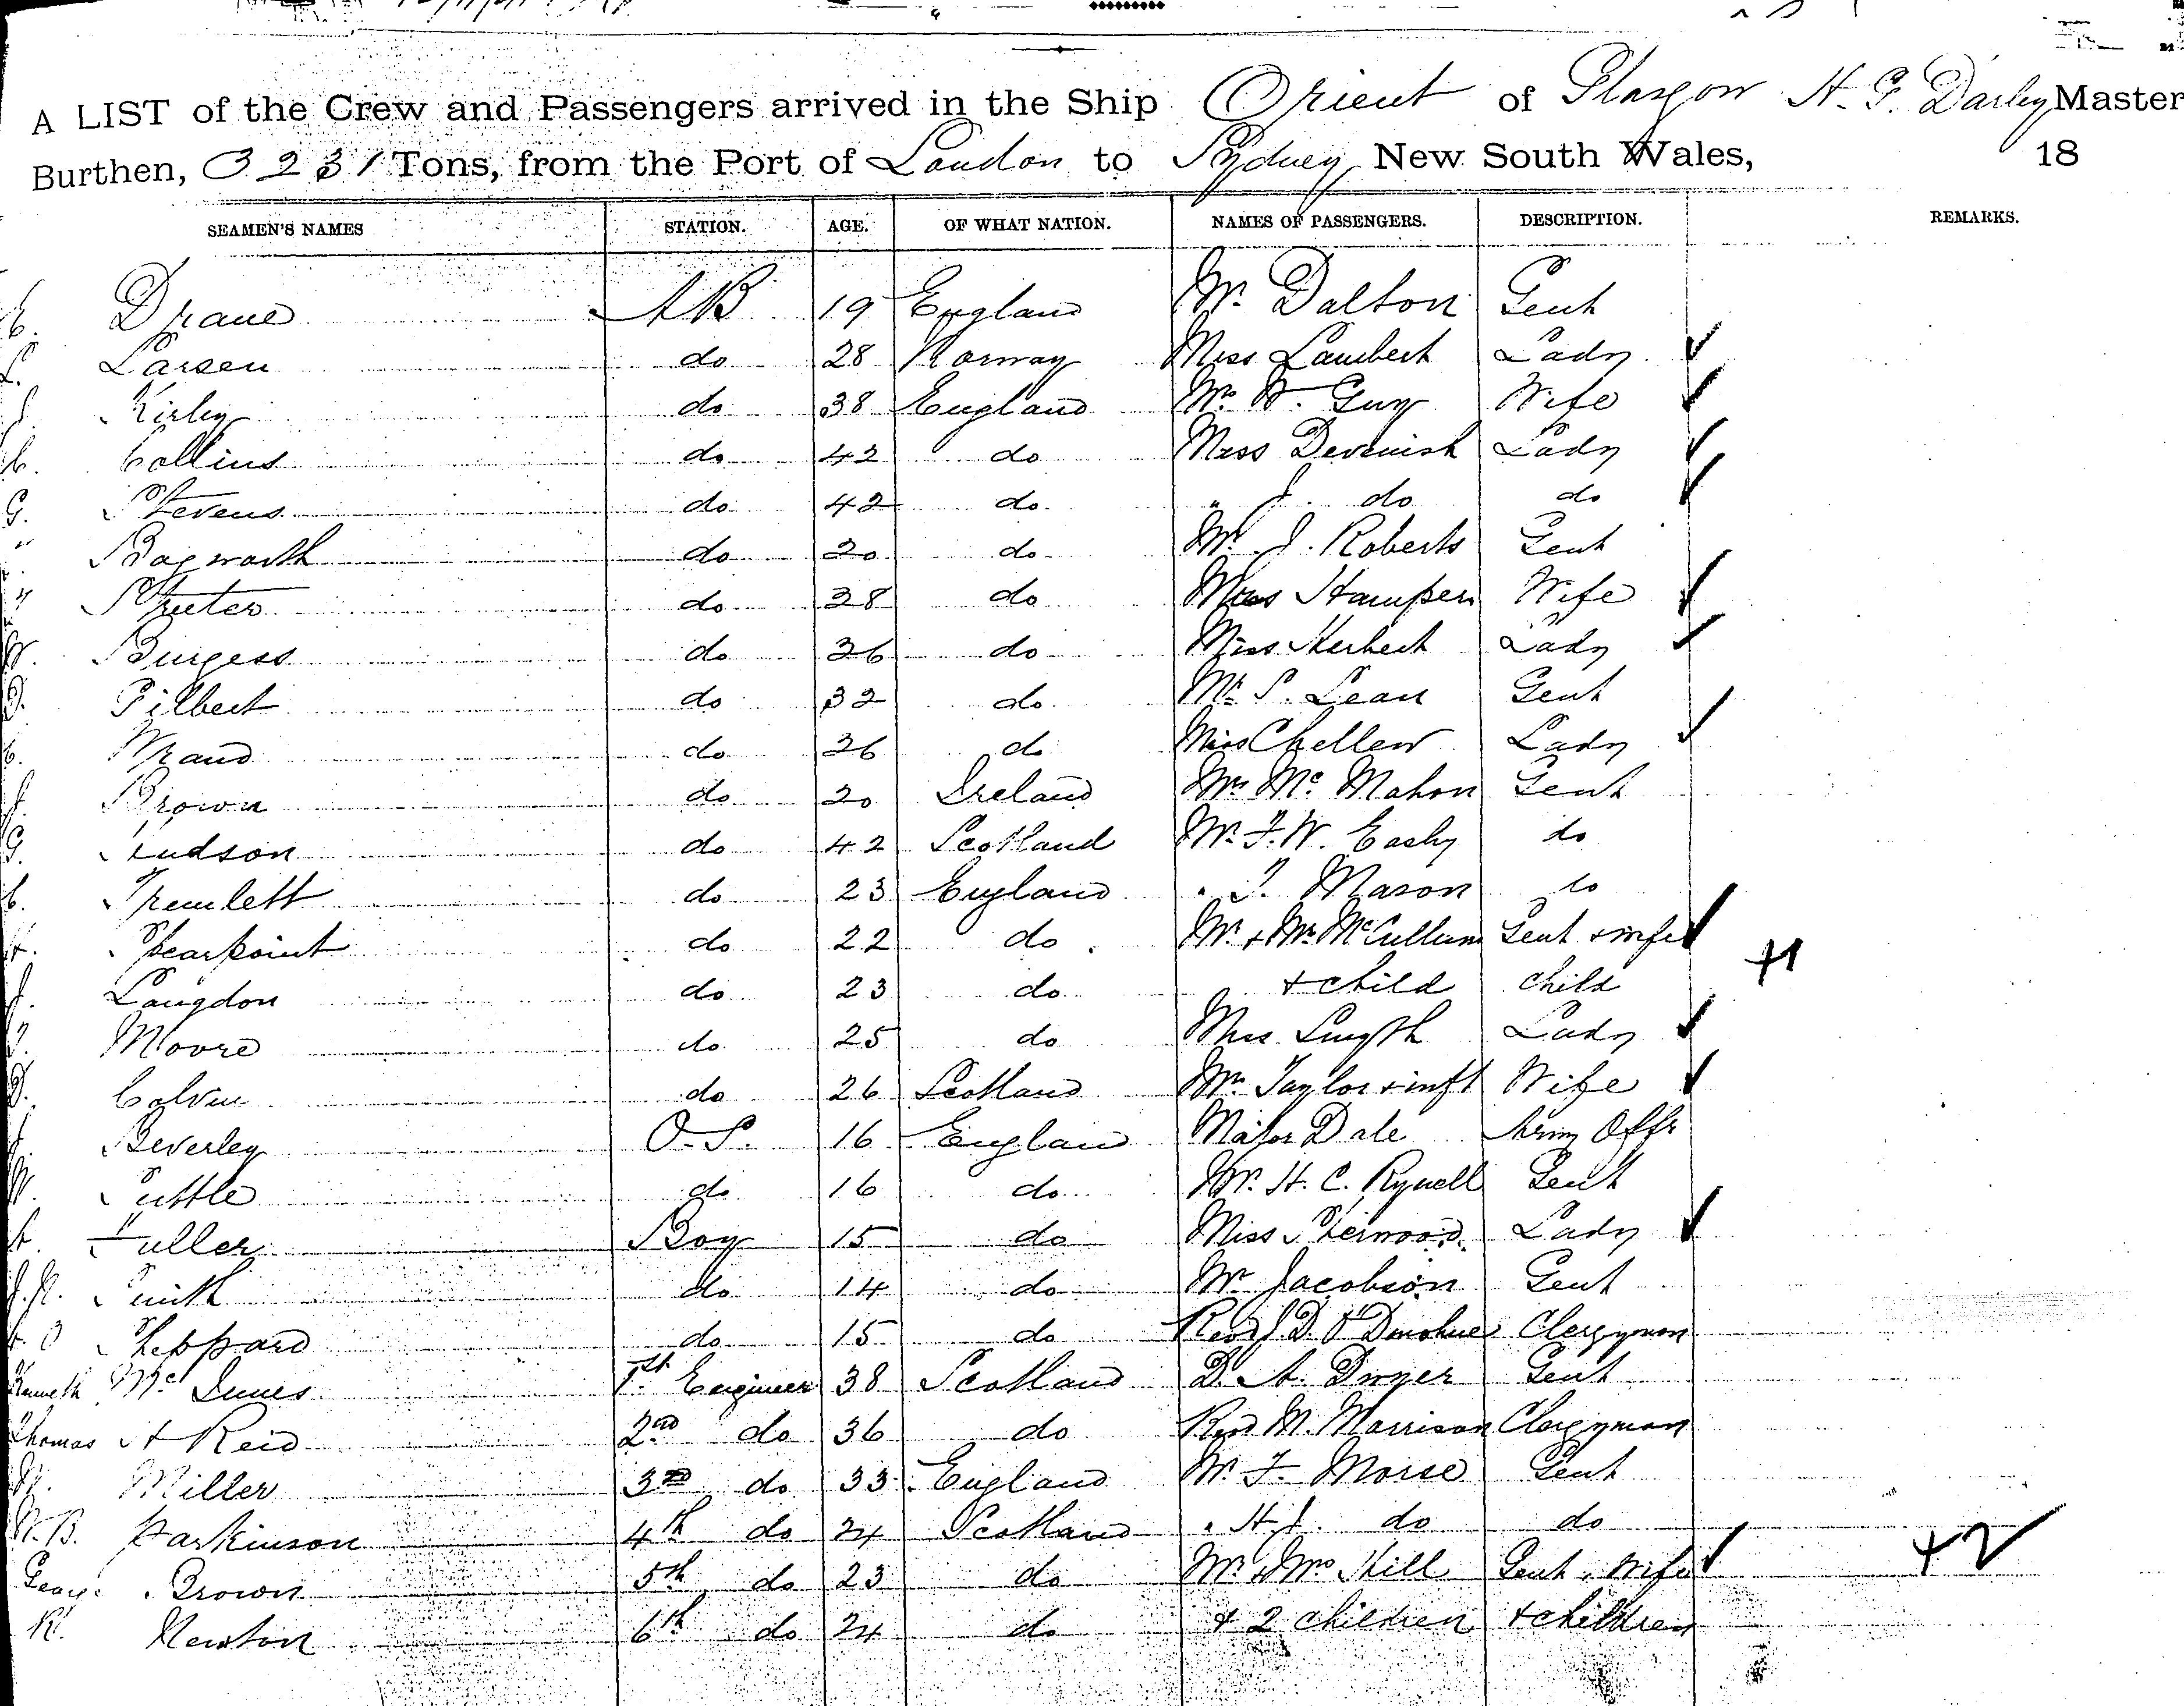 A LIST of the Crew and Passengers arrived in the Ship Orient of Glasgow H. G. Darley Master
Burthen, 3231 Tons, from the Port of London to Sydney New South Wales, 18
SEAMEN'S NAMES STATION. AGE. OF WHAT NATION. NAMES OF PASSENGERS. DESCRIPTION. REMARKS.
C. Drane AB 19 England Mr. Dalton Gent
L. Larsen do 28 Norway Miss Lambert Lady
J. Kirby do 38 England Mrs W. Guy Wife
C. Collins do 42 do Miss Devenish Lady
G. Stevens do 42 do " J. do do
Bagworth do 20 do Mr. J. Roberts Gent
Streeter do 28 do Mrs Stamper Wife
W. Burgess do 26 do Miss Herbert Lady
Gilbert do 32 do Mr. S. Lean Gent
C. Wrand do 26 do Miss Chellew Lady
J. Brown do 20 Ireland Mr. McMahon Gent
G. Judson do 42 Scotland Mr. F. W. Easby do
C. Tremlett do 23 England " T. Mason do
Spearpoint do 22 do Mr. + Mrs McCullum Gent + wife
J. Langdon do 23 do + child child +1
Moore do 25 do Miss Smyth Lady
D. Colvin do 26 Scotland Mrs Taylor + inft Wife
Beverley O.S. 16 England Major Dale Army Offr
W. Tuttle do 16 do Mr. H. C. Rynell Gent
Fuller Boy 15 do Miss Sherwood Lady
Smith do 14 do Mr Jacobson Gent
Sheppard do 15 do Revd J D O'Donohue Clergyman
Kenneth McInnes 1st Engineer 38 Scotland D. A. Dwyer Gent
Thomas A Reid 2nd do 36 do Revd M. Morrison Clergyman
Miller 3rd do 33 England Mr. F. Morse Gent
W. B. Parkinson 4th do 24 Scotland " H J. do do
George Brown 5th do 23 do Mr. + Mrs Hill Gent + Wife +2
R. Newton 6th do 24 do + 2 children + children